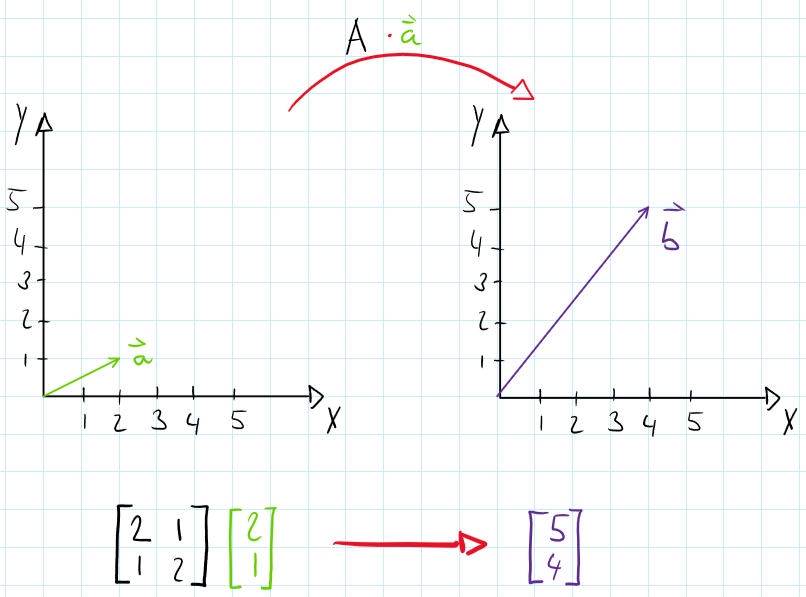 A · a⃗
Y
5
4
3
2
1
a⃗
1 2 3 4 5
X
Y
5
4
3
2
1
b⃗
1 2 3 4 5
X
[2 1] [2] [5]
[1 2] [1] [4]